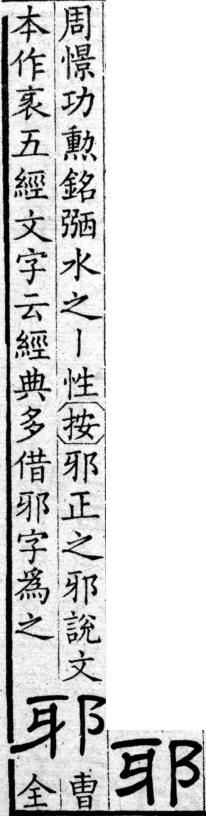 周憬功勲銘弱水之丨性按邪正之邪說文
本作衺五經文字云經典多借邪字爲之
耶
曹
全
耶